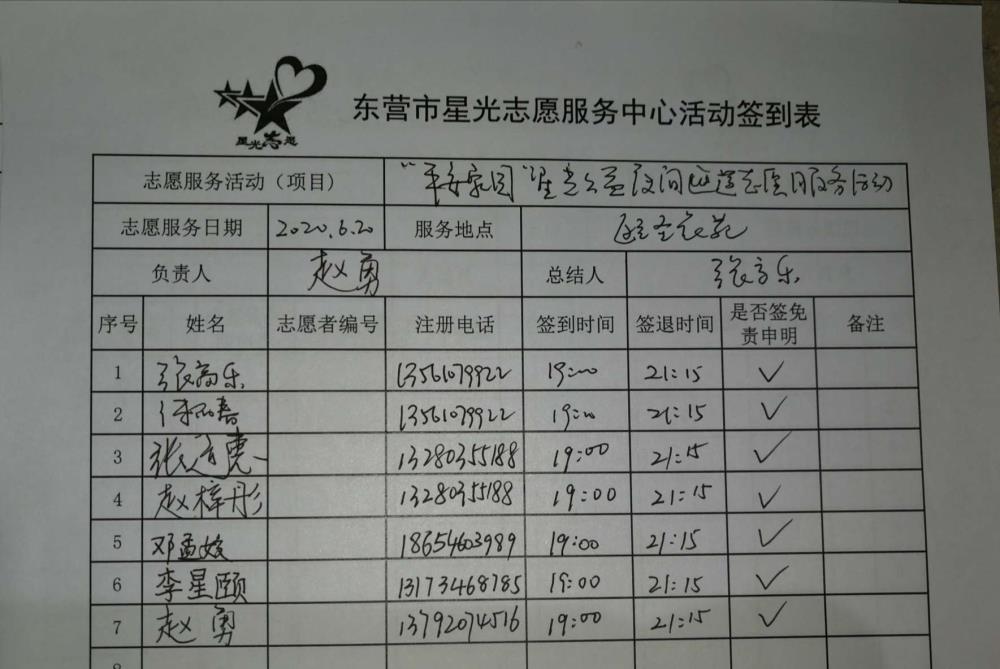 星光志愿
东营市星光志愿服务中心活动签到表
志愿服务活动（项目） “平安家园”星光公益夜间巡逻志愿服务活动
志愿服务日期 2020.6.20 服务地点
负责人 赵勇 总结人 张高乐
序号 姓名 志愿者编号 注册电话 签到时间 签退时间 是否签免责申明 备注
1 张高乐 13561079922 19:00 21:15 ✓
2 13561079922 19:00 21:15 ✓
3 张道虎 13280355188 19:00 21:15 ✓
4 赵梓彤 13280355188 19:00 21:15 ✓
5 邓孟姣 18654603989 19:00 21:15 ✓
6 李星颐 13173468785 19:00 21:15 ✓
7 赵勇 13792074516 19:00 21:15 ✓